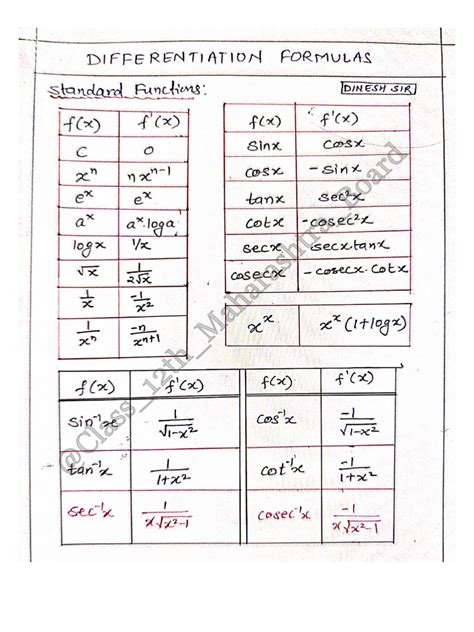 DIFFERENTIATION FORMULAS
Standard Functions:
DINESH SIR
f(x) f'(x)
C 0
xⁿ nxⁿ⁻¹
eˣ eˣ
aˣ aˣ.loga
logx 1/x
√x 1/2√x
1/x -1/x²
1/xⁿ -n/xⁿ⁺¹
f(x) f'(x)
sinx cosx
cosx -sinx
tanx sec²x
cotx -cosec²x
secx secx.tanx
cosecx -cosecx.cotx
xˣ xˣ(1+logx)
f(x) f'(x) f(x) f'(x)
sin⁻¹x 1/√1-x² cos⁻¹x -1/√1-x²
tan⁻¹x 1/1+x² cot⁻¹x -1/1+x²
sec⁻¹x 1/x√x²-1 cosec⁻¹x -1/x√x²-1
@Class_12th_Maharashtra_Board